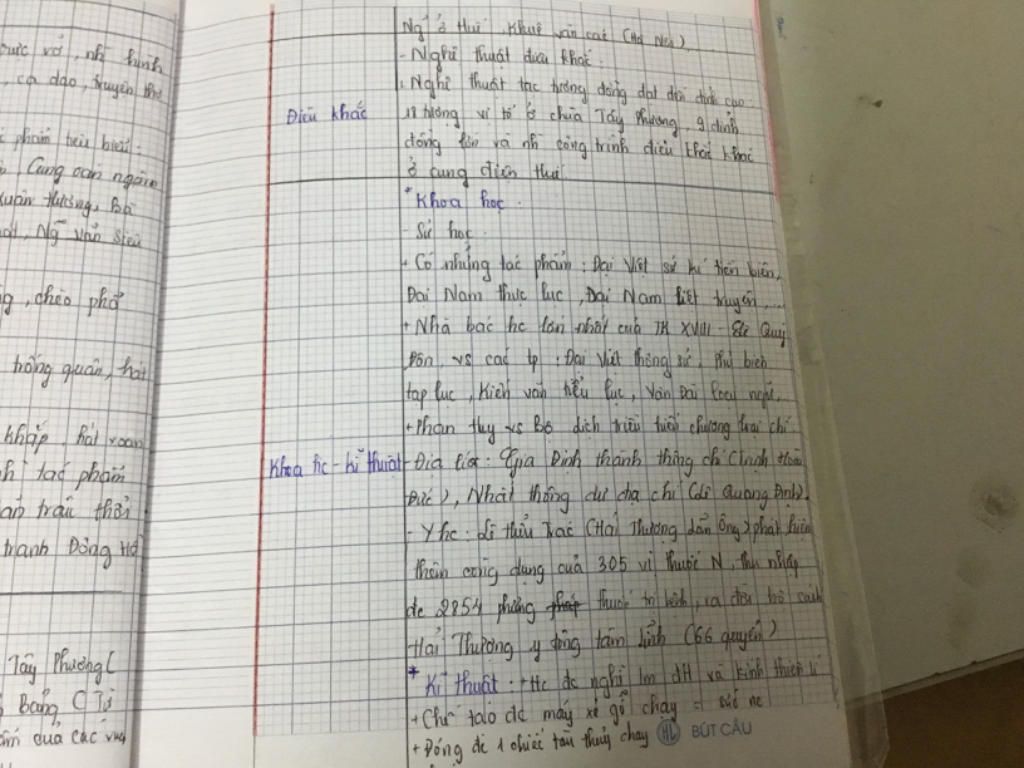 rực rỡ, nh hình
, ca dao, truyện thơ
phẩm tiêu biểu:
, Cung oán ngâm
Xuân Hương, Bà
, Ng văn Siêu
, chèo phổ
trống quân, hát
khắp, hát xoan
tác phẩm
trâu thổi
tranh Đông Hồ
Tây Phương (
Bảng (Từ
qua các
Ng ở Huế, Khuê văn các (Hà Nội)
- Nghê thuật điêu khắc:
+ Nghê thuật tạc tượng đồng đạt đến đỉnh cao
Điêu khắc
18 tượng vị tổ ở chùa Tây Phương, 9 đỉnh
đồng lớn và nh công trình điêu khắc khác
ở cung điện Huế
* Khoa học.
- Sử học
+ Có những tác phẩm: Đại Việt sử kí tiền biên,
Đại Nam thực lục, Đại Nam liệt truyện,...
+ Nhà bác hc lớn nhất của TK XVIII - Lê Quý
Đôn, vs các tp: Đại Việt thông sử, Phủ biên
tạp lục, Kiến văn tiểu lục, Vân Đài loại ngữ.
+ Phan Huy vs Bộ lịch triều hiến chương loại chí
Khoa hc - kĩ thuật
- Địa lí: Gia Định thành thông chí (Trịnh Hoài
Đức), Nhất thống dư địa chí (Lê Quang Định).
- Y hc: Lê Hữu Trác (Hải Thượng Lãn Ông) phát hiện
thêm công dụng của 305 vị thuốc N, thu nhập
đc 2854 phương thuốc trị bệnh, ra đời bộ sách
Hải Thượng y tông tâm lĩnh (66 quyển)
* Kĩ thuật: + Hc đc nghề lm đH và kính thiên lí
+ Chế tạo đc máy xẻ gỗ chạy = sức nc
+ Đóng đc 1 chiếc tàu thủy chạy
HL BÚT CẦU